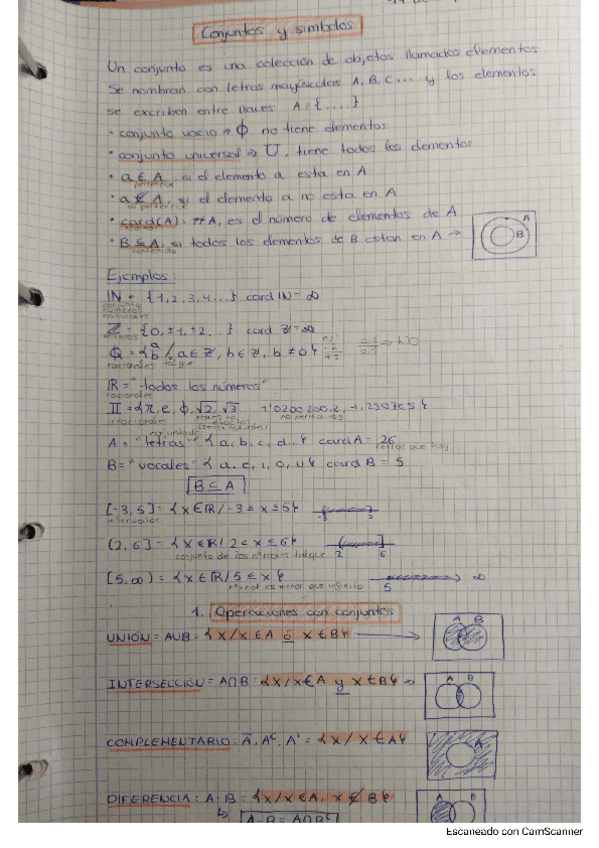 Conjuntos y símbolos
Un conjunto es una colección de objetos llamados elementos.
Se nombran con letras mayúsculas A, B, C... y los elementos
se escriben entre llaves A = {....}
· conjunto vacio ⇒ ϕ no tiene elementos
· conjunto universal ⇒ U, tiene todos los elementos
· a ∈ A, si el elemento a esta en A
pertenece
· a ∉ A, si el elemento a no esta en A
no pertenece
· card(A) = #A, es el número de elementos de A
cardinal
· B ⊆ A, si todos los elementos de B estan en A → A B
contenido
Ejemplos:
IN = {1, 2, 3, 4...} card IN = ∞
conjunto números naturales
Z = {0, ±1, ±2, ..} card Z = ∞
enteros
Q = {a/b / a ∈ Z, b ∈ Z, b ≠ 0} ⇒ NO
racionales talque
IR = "todos los números"
II = {π, e, ϕ, √2, √3 1'0200200.2, -1,250765}
irracionales no periodicos
A = "letras" {a, b, c, d...} card A = 26
letras que hay
B = "vocales" {a, e, i, o, u} card B = 5
B ⊆ A
[-3, 5] = {x ∈ IR / -3 ≤ x ≤ 5} -3 5
intervalos
(2, 6] = {x ∈ IR / 2 < x ≤ 6} 2 6
conjunto de los números talque
[5, ∞) = {x ∈ IR / 5 ≤ x} 5 ∞
es menor que infinito
1. Operaciones con conjuntos
UNIÓN = A∪B = {x / x ∈ A ó x ∈ B} → A B
INTERSECCIÓN = A∩B = {x / x ∈ A y x ∈ B} → A B
COMPLEMENTARIO: Ā, Aᶜ, A' = {x / x ∉ A} A
DIFERENCIA: A - B = {x / x ∈ A, x ∉ B} A B
A - B = A∩Bᶜ
Escaneado con CamScanner